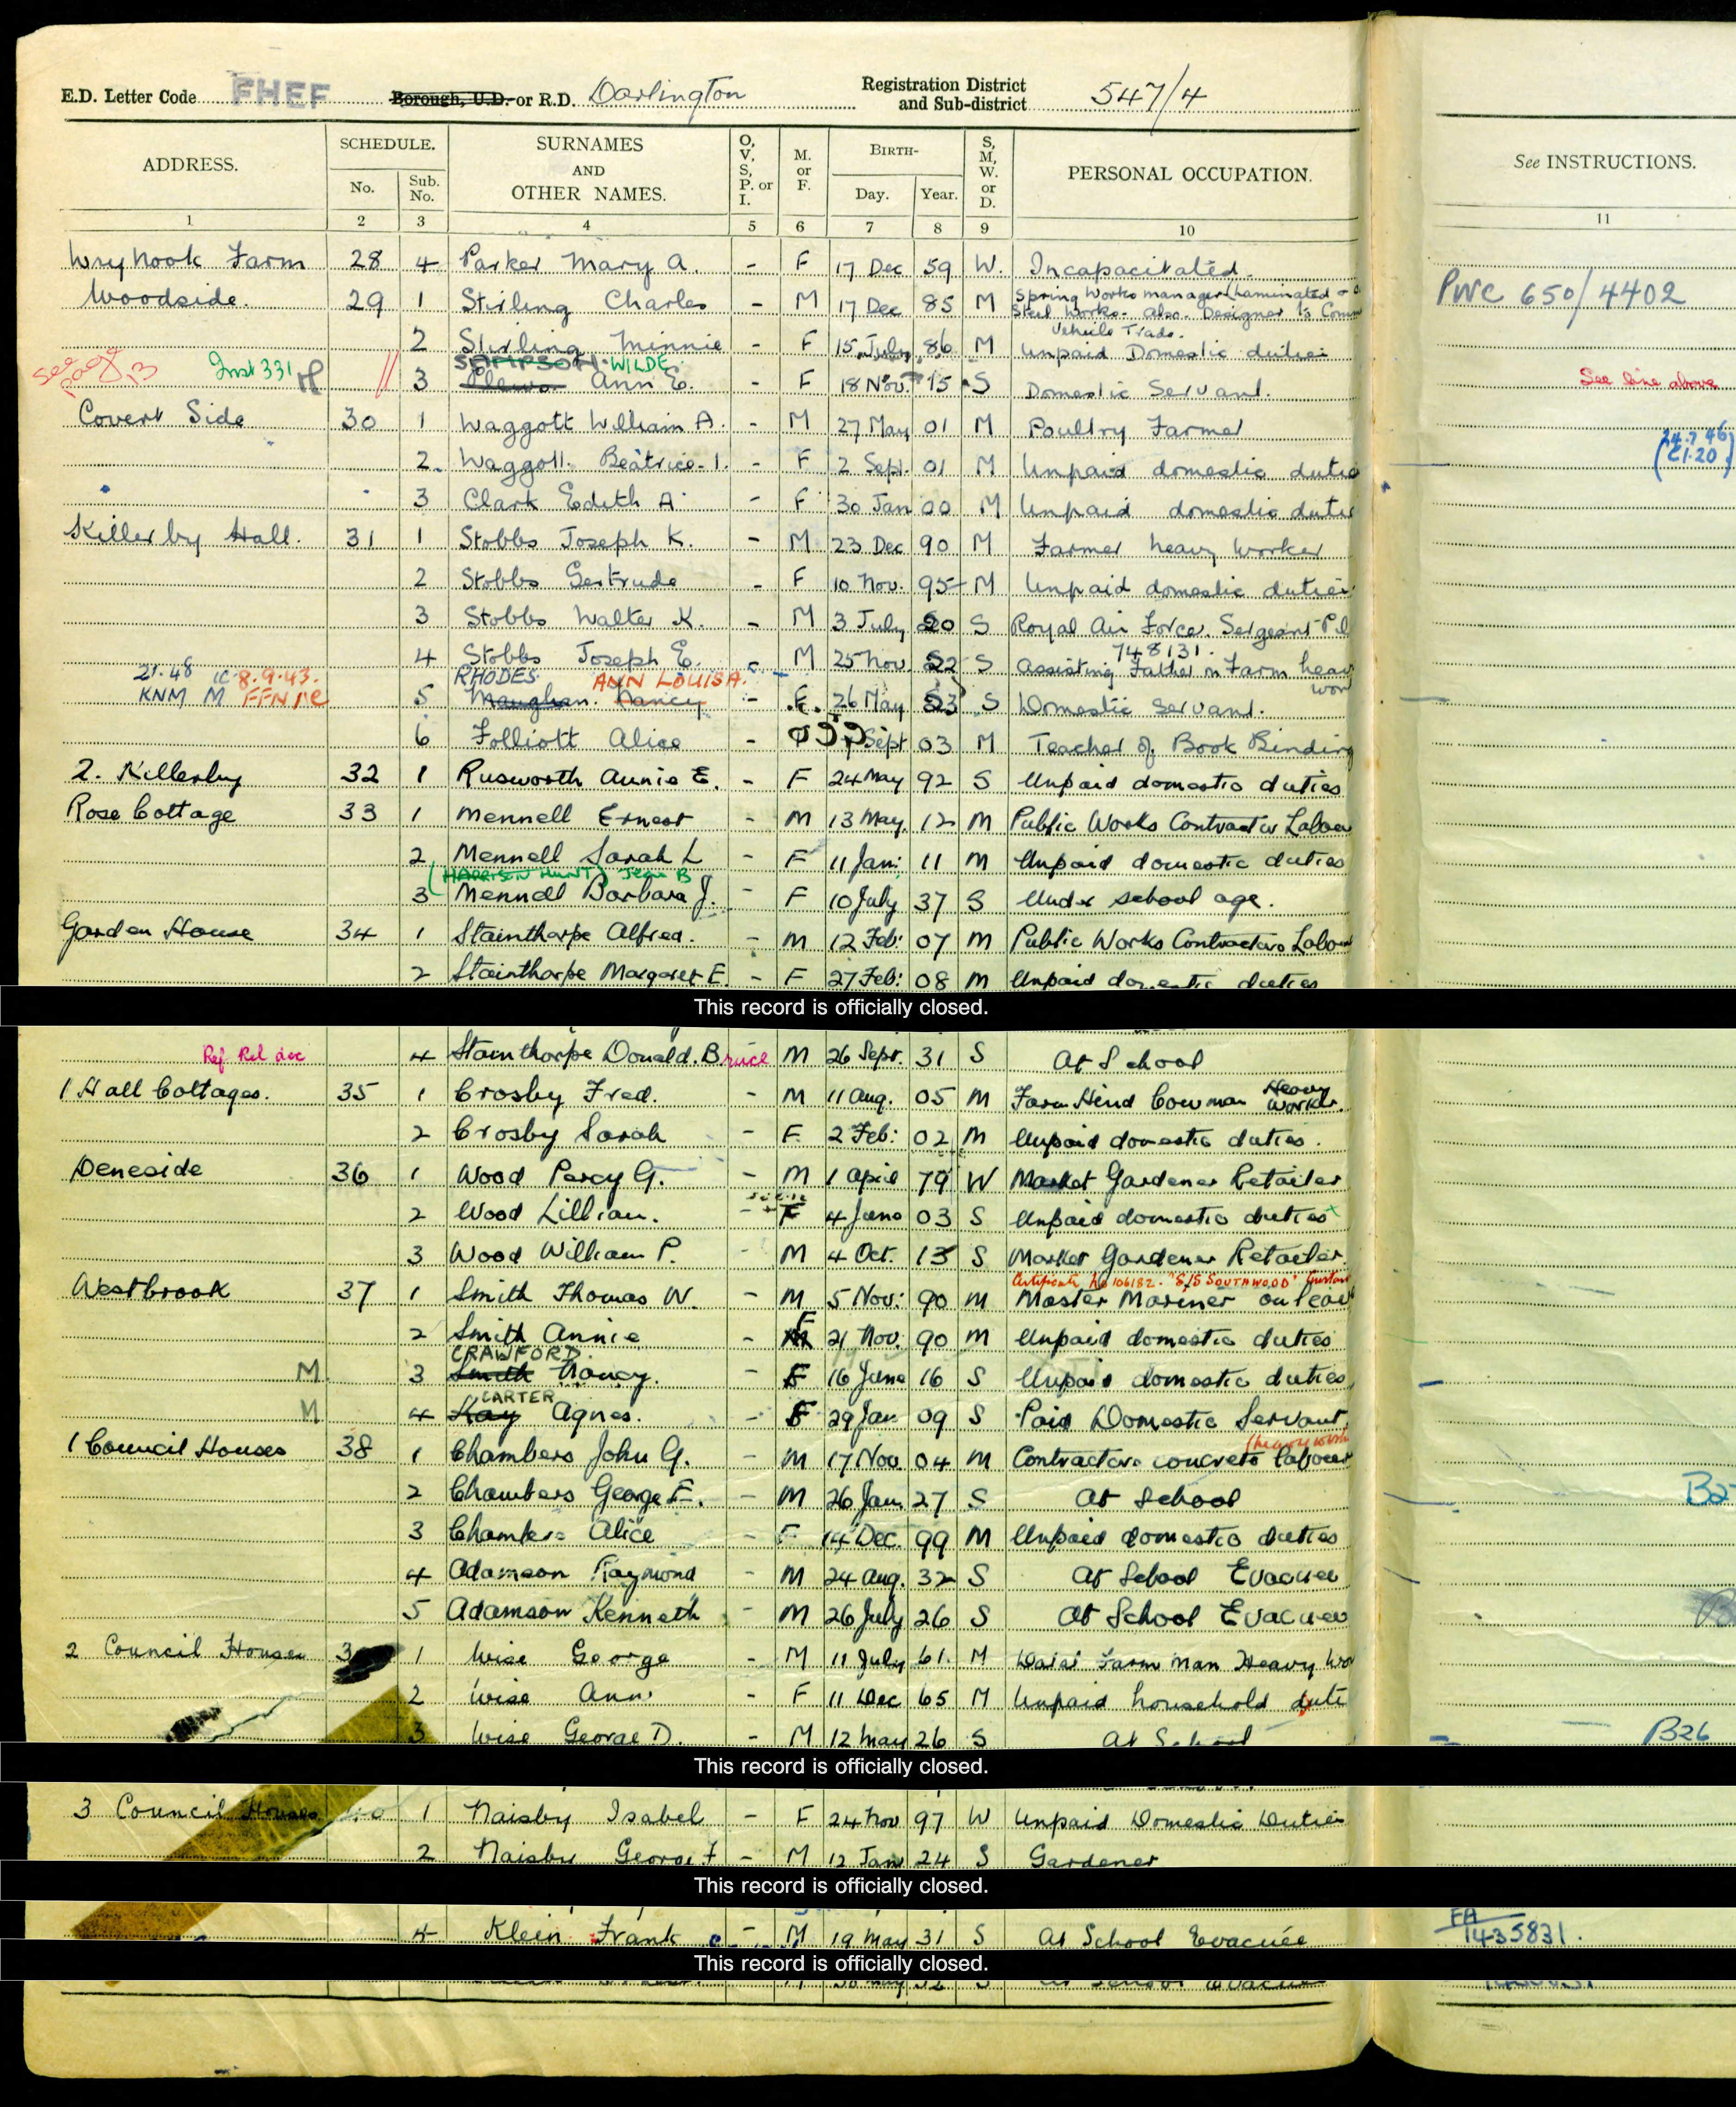 E.D. Letter Code FHEF Borough, U.D. or R.D. Darlington Registration District and Sub-district 547/4
ADDRESS. SCHEDULE. No. Sub. No. SURNAMES AND OTHER NAMES. O, V, S, P. or I. M. or F. BIRTH- Day. Year. S, M, W. or D. PERSONAL OCCUPATION. See INSTRUCTIONS.
1 2 3 4 5 6 7 8 9 10 11
Farm 28 4 Parker Mary A. - F 17 Dec 59 W. Incapacitated.
Woodside. 29 1 Stirling Charles - M 17 Dec 85 M Spring Works manager (Laminated + Steel Works. Also Designer to Comm Vehicle Trade. PWC 650/4402
2 Stirling Minnie - F 15 July 86 M Unpaid Domestic duties
See page 13 Inst 331 3 SAMPSON WILDE Ann E. - F 18 Nov. 15 S Domestic Servant. See line above
Covert Side 30 1 Waggott William A. - M 27 May 01 M Poultry Farmer
2 Waggott Beatrice I. - F 2 Sept. 01 M Unpaid domestic dutie 24.7.46 (C1.20)
3 Clark Edith A - F 30 Jan 00 M Unpaid domestic dutie
Killerby Hall. 31 1 Stobbs Joseph K. - M 23 Dec 90 M Farmer heavy worker
2 Stobbs Gertrude - F 10 Nov. 95 M Unpaid domestic duties
3 Stobbs Walter K. - M 3 July 20 S Royal Air Force. Sergeant Pil 748131.
4 Stobbs Joseph E. M 25 Nov 22 S Assisting Father in Farm heavy wor
21.48 KNM M 8.9.43. 5 RHODES ANN LOUISA. Maughan. Nancy - F. 26 May 23 S Domestic Servant.
6 Folliott Alice - Sept 03 M Teacher of Book Binding
2. Killerby 32 1 Rusworth Annie E. - F 24 May 92 S Unpaid domestic duties
Rose Cottage 33 1 Mennell Ernest - M 13 May. 12 M Public Works Contractor Labou
2 Mennell Sarah L - F 11 Jan: 11 M Unpaid domestic duties
(HARRISON HUNT) Jean B
3 Mennell Barbara J. - F 10 July 37 S Under school age.
Garden House 34 1 Stainthorpe Alfred. - M 12 Feb: 07 M Public Works Contractors Labou
2 Stainthorpe Margaret E. - F 27 Feb: 08 M Unpaid domestic duties
This record is officially closed.
Ref Rel dec 4 Stainthorpe Donald. Bruce M 26 Sept. 31 S At School
1 Hall Cottages. 35 1 Crosby Fred. - M 11 Aug. 05 M Farm Hind Cowman Heavy Worker.
2 Crosby Sarah - F 2 Feb: 02 M Unpaid domestic duties.
Deneside 36 1 Wood Percy G. - M 1 April 79 W Market Gardener Retailer
2 Wood Lillian. F 4 June 03 S Unpaid domestic duties
3 Wood William P. - M 4 Oct. 13 S Market Gardener Retailer.
Certificate No 106182. "S/S SOUTHWOOD"
Westbrook 37 1 Smith Thomas W. - M 5 Nov: 90 M Master Mariner on leave
2 Smith Annie - F 21 Nov. 90 M Unpaid domestic duties
M 3 CRAWFORD Smith Nancy. - F 16 June 16 S Unpaid domestic duties
M 4 CARTER Kay Agnes. - F 29 Jan 09 S Paid Domestic Servant.
1 Council Houses 38 1 Chambers John G. - M 17 Nov 04 M Contractors concrete labourer (heavy work
2 Chambers George F. - M 26 Jan. 27 S At School B27
3 Chambers Alice - F 14 Dec. 99 M Unpaid domestic duties
4 Adamson Raymond - M 24 Aug. 32 S At School Evacuee
5 Adamson Kenneth - M 26 July 26 S At School Evacuee
2 Council Houses 3 1 Wise George - M 11 July 61. M Farm man Heavy Wor
2 Wise Ann - F 11 Dec 65 M Unpaid household duti
3 Wise George D. - M 12 May 26 S At School B26
This record is officially closed.
3 Council Houses 40 1 Naisby Isabel - F 24 Nov 97 W Unpaid Domestic Duties
2 Naisby George F - M 12 Jan 24 S Gardener
This record is officially closed.
4 Klein Frank - M 19 May 31 S At School Evacuée FA 1435831.
This record is officially closed.